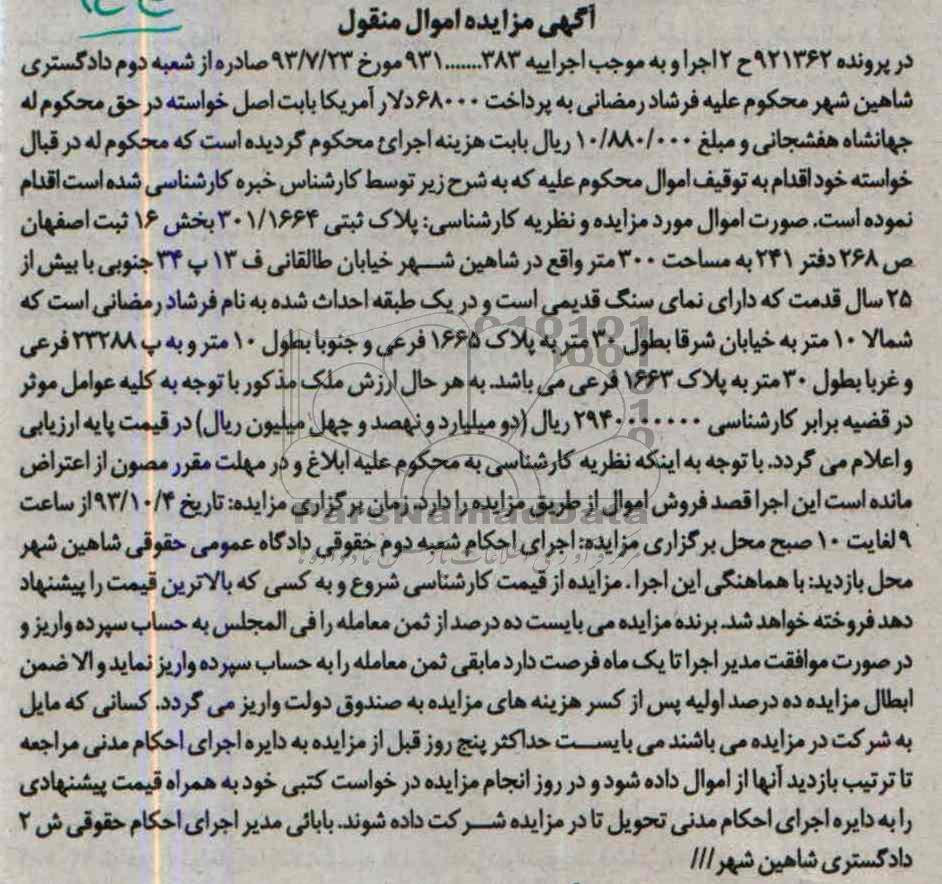 آگهی مزایده اموال منقول
در پرونده ۹۲۱۳۶۲ح ۲ اجرا و به موجب اجراییه ۳۸۳.......۹۳۱ مورخ ۹۳/۷/۲۳ صادره از شعبه دوم دادگستری
شاهین شهر محکوم علیه فرشاد رمضانی به پرداخت ۶۸۰۰۰ دلار آمریکا بابت اصل خواسته در حق محکوم له
جهانشاه هفشجانی و مبلغ ۱۰/۸۸۰/۰۰۰ ریال بابت هزینه اجرائ محکوم گردیده است که محکوم له در قبال
خواسته خود اقدام به توقیف اموال محکوم علیه که به شرح زیر توسط کارشناس خبره کارشناسی شده است اقدام
نموده است. صورت اموال مورد مزایده و نظریه کارشناسی: پلاک ثبتی ۳۰۱/۱۶۶۴ بخش ۱۶ ثبت اصفهان
ص ۲۶۸ دفتر ۲۴۱ به مساحت ۳۰۰ متر واقع در شاهین شهر خیابان طالقانی ف ۱۳ پ ۳۴ جنوبی با بیش از
۲۵ سال قدمت که دارای نمای سنگ قدیمی است و در یک طبقه احداث شده به نام فرشاد رمضانی است که
شمالا ۱۰ متر به خیابان شرقا بطول ۳۰ متر به پلاک ۱۶۶۵ فرعی و جنوبا بطول ۱۰ متر و به پ ۲۳۲۸۸ فرعی
و غربا بطول ۳۰ متر به پلاک ۱۶۶۳ فرعی می باشد. به هر حال ارزش ملک مذکور با توجه به کلیه عوامل موثر
در قضیه برابر کارشناسی ۲۹۴۰۰۰۰۰۰۰ ریال (دو میلیارد و نهصد و چهل میلیون ریال) در قیمت پایه ارزیابی
و اعلام می گردد. با توجه به اینکه نظریه کارشناسی به محکوم علیه ابلاغ و در مهلت مقرر مصون از اعتراض
مانده است این اجرا قصد فروش اموال از طریق مزایده را دارد. زمان برگزاری مزایده: تاریخ ۹۳/۱۰/۴ از ساعت
ParsNamadData
۹ لغایت ۱۰ صبح محل برگزاری مزایده: اجرای احکام شعبه دوم حقوقی دادگاه عمومی حقوقی شاهین شهر
محل بازدید: با هماهنگی این اجرا. مزایده از قیمت کارشناسی شروع و به کسی که بالاترین قیمت را پیشنهاد
دهد فروخته خواهد شد. برنده مزایده می بایست ده درصد از ثمن معامله را فی المجلس به حساب سپرده واریز و
در صورت موافقت مدیر اجرا تا یک ماه فرصت دارد مابقی ثمن معامله را به حساب سپرده واریز نماید و الا ضمن
ابطال مزایده ده درصد اولیه پس از کسر هزینه های مزایده به صندوق دولت واریز می گردد. کسانی که مایل
به شرکت در مزایده می باشند می بایست حداکثر پنج روز قبل از مزایده به دایره اجرای احکام مدنی مراجعه
تا ترتیب بازدید آنها از اموال داده شود و در روز انجام مزایده درخواست کتبی خود به همراه قیمت پیشنهادی
را به دایره اجرای احکام مدنی تحویل تا در مزایده شرکت داده شوند. بابائی مدیر اجرای احکام حقوقی ش ۲
دادگستری شاهین شهر ///